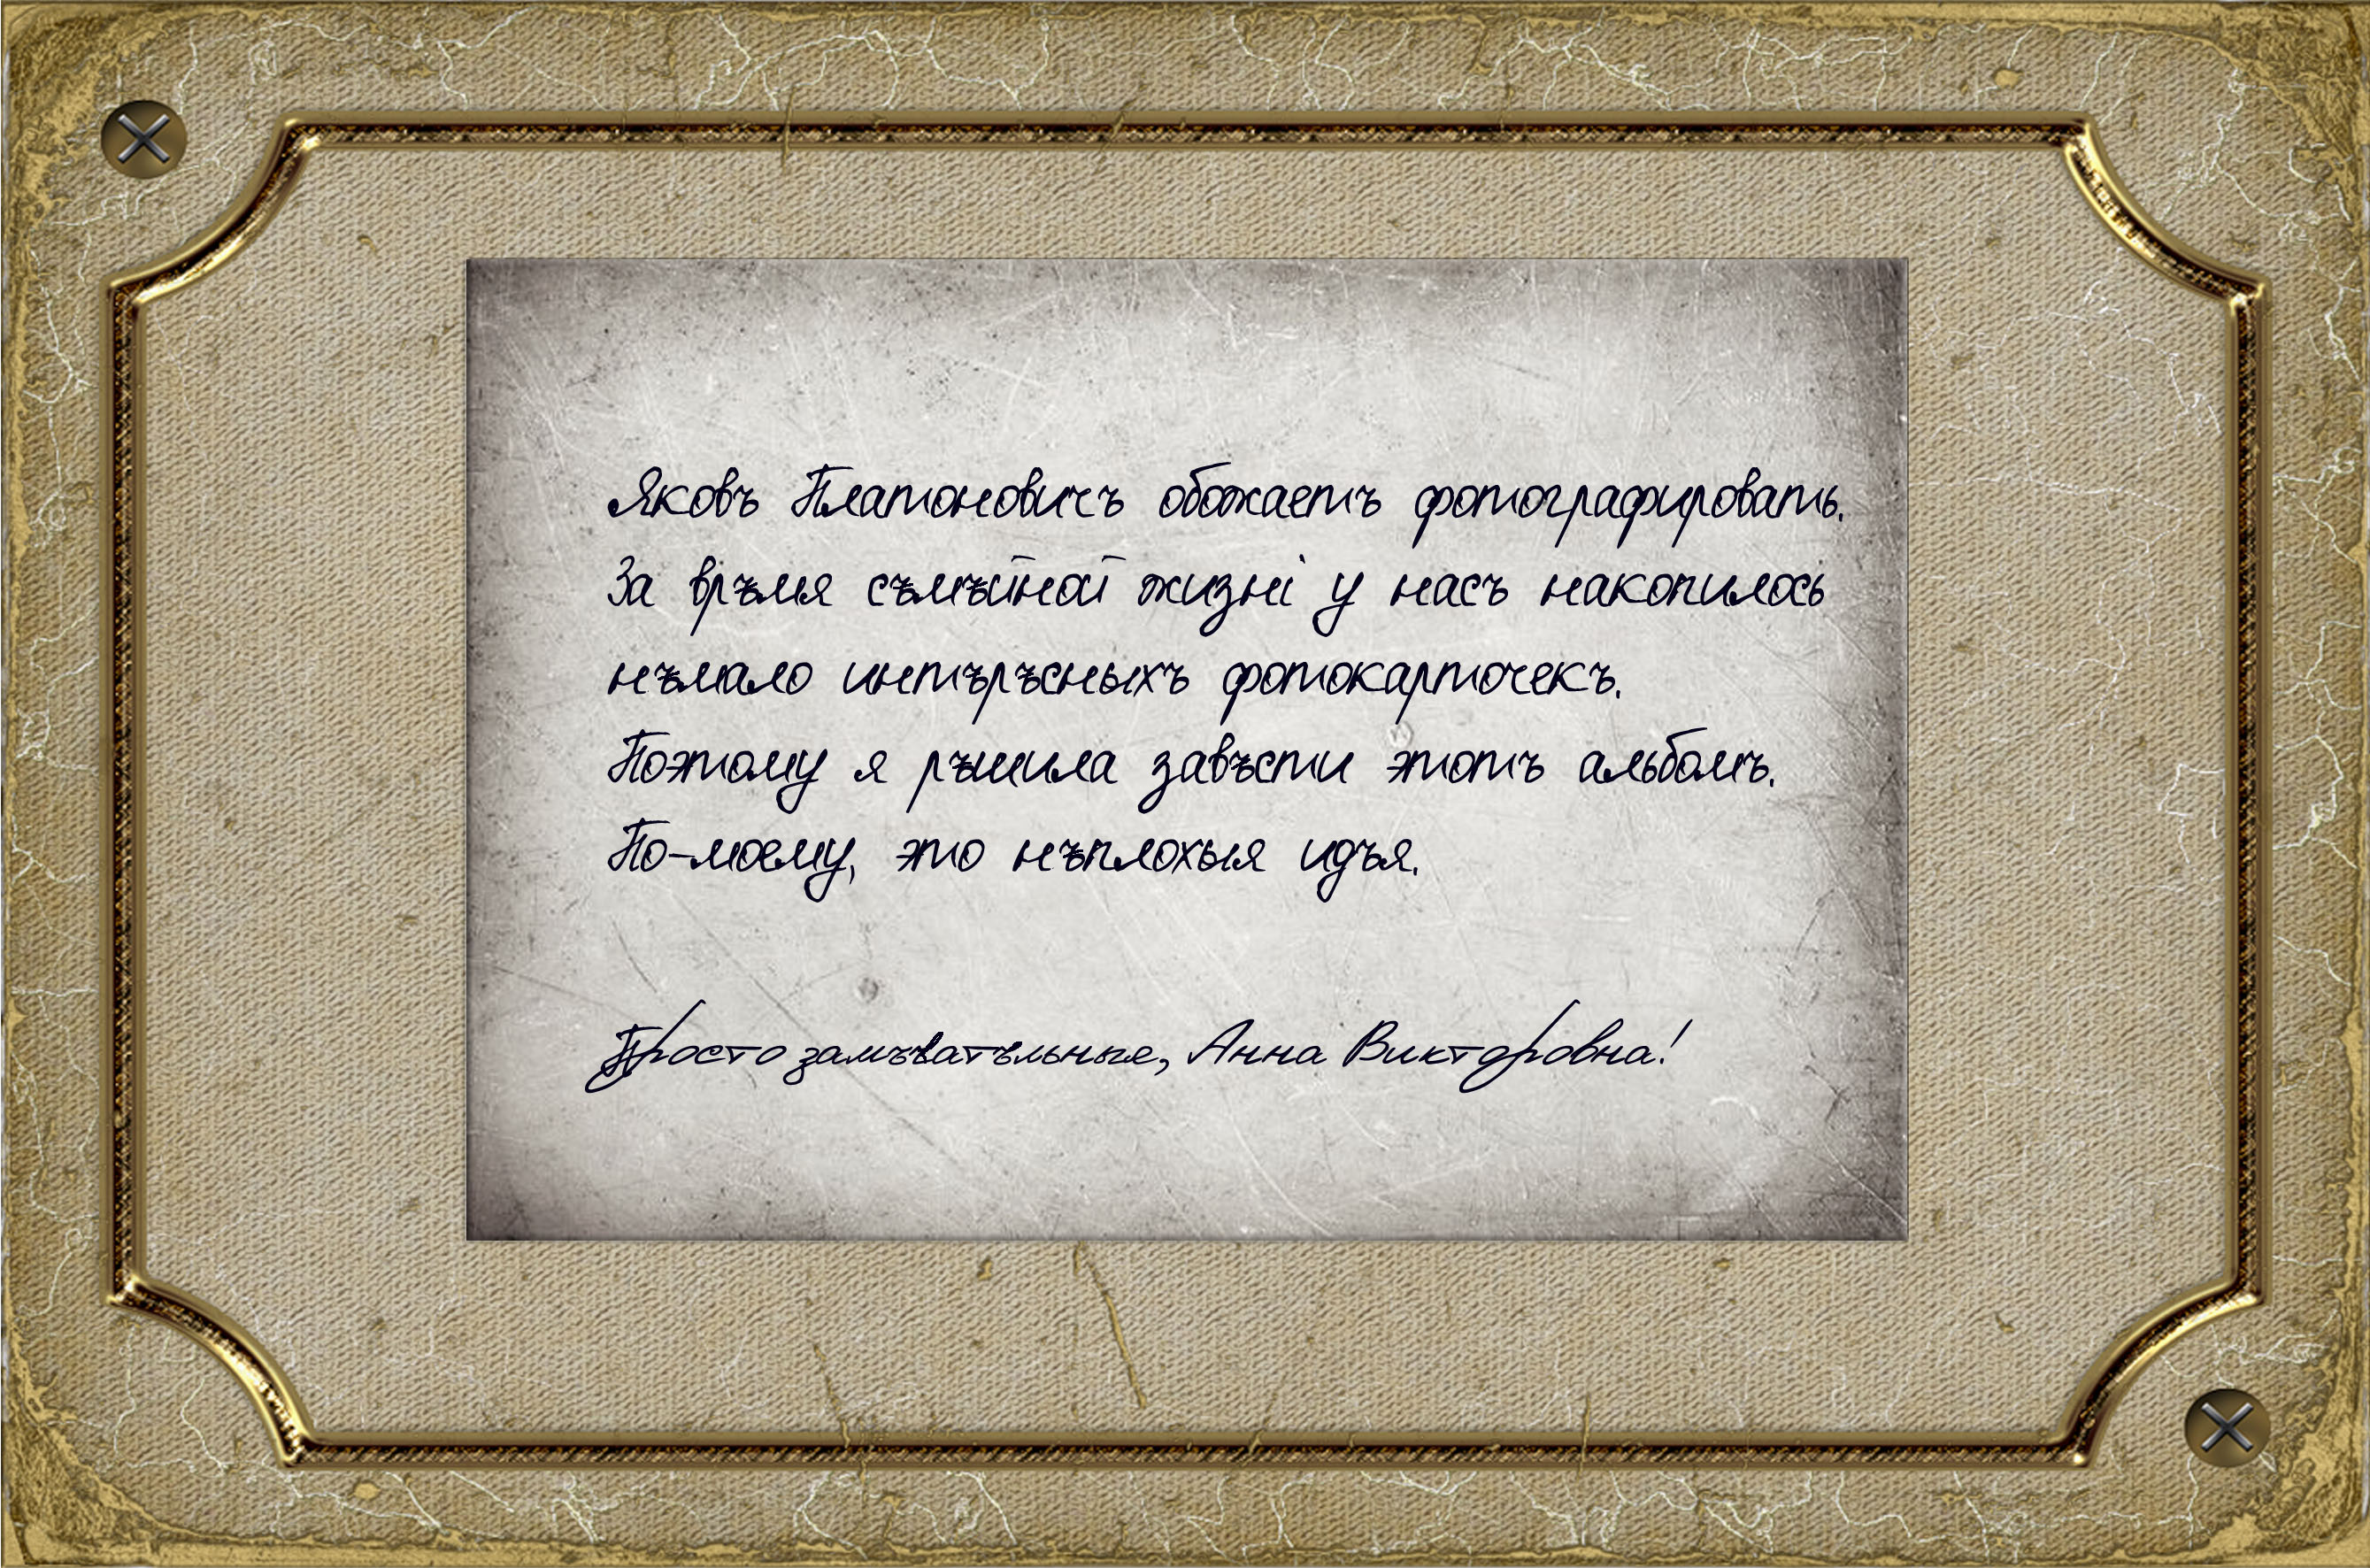 Яковъ Платоновичъ обожаетъ фотографировать.
За врѣмя сѣмѣйной жизні у насъ накопилось
нѣмало интѣрѣсныхъ фотокарточекъ.
Поэтому я рѣшила завѣсти этотъ альбомъ.
По-моему, это нѣплохыя идѣя.
Просто замѣчатѣльныя, Анна Викторовна!